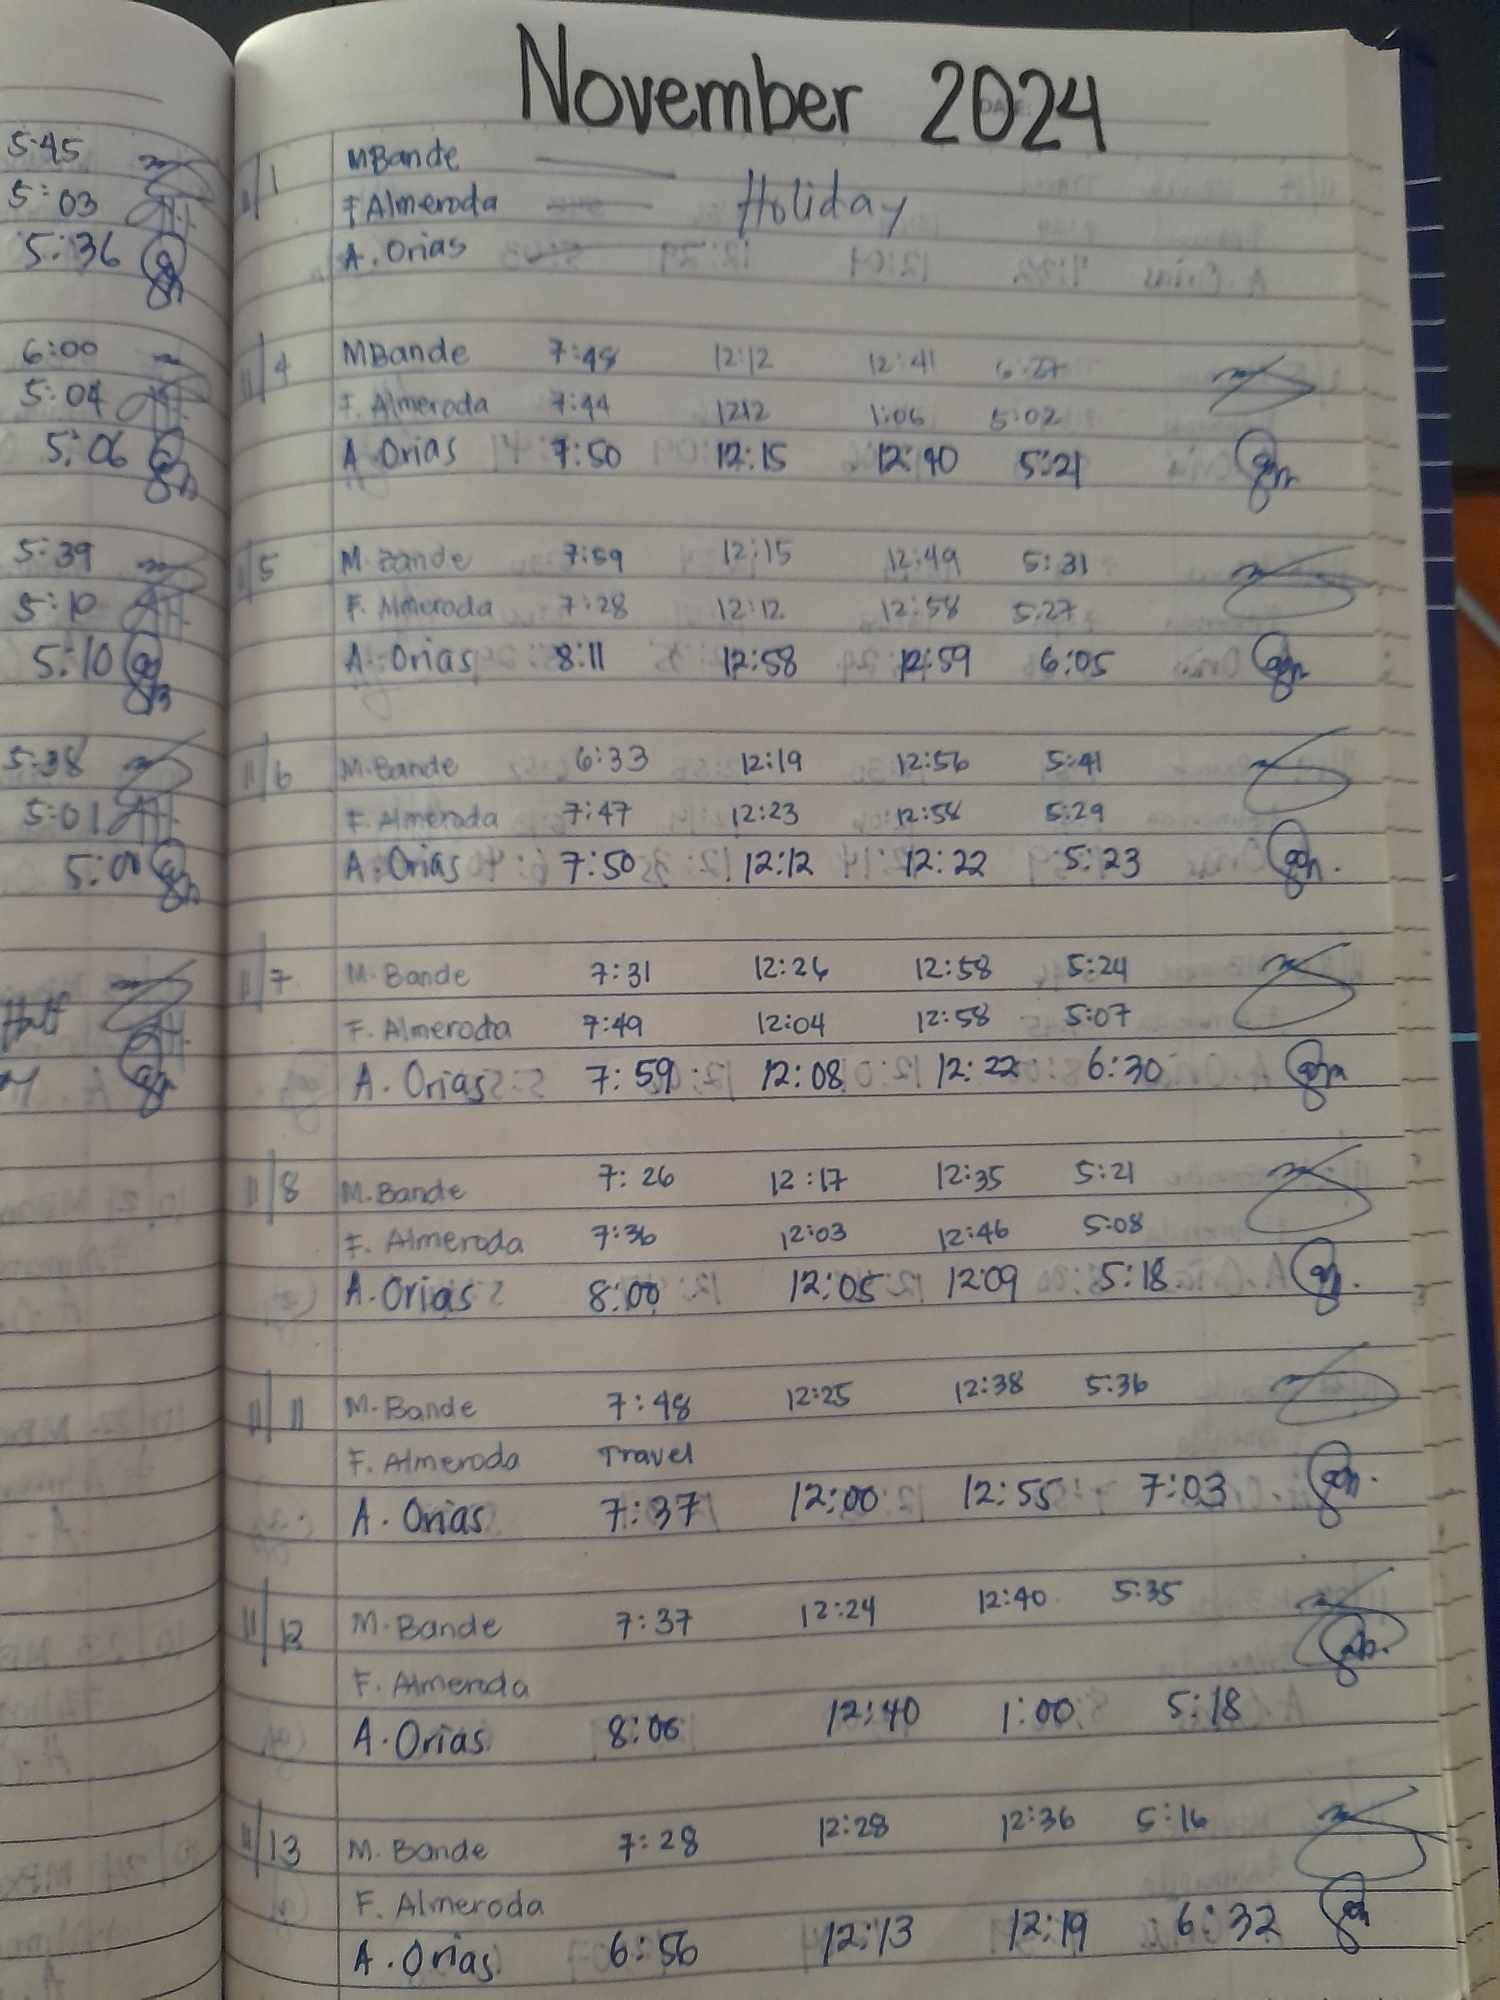 November 2024
5:45
5:03
5:36
6:00
5:04
5:06
5:39
5:10
5:10
5:38
5:01
5:00
Half
11/1 MBande
F Almeroda Holiday
A. Orias
11/4 MBande 7:48 12:12 12:41 6:27
F. Almeroda 7:44 1212 1:06 5:02
A Orias 7:50 12:15 12:40 5:21
11/5 M. Bande 7:59 12:15 12:49 5:31
F. Almeroda 7:28 12:12 12:58 5:27
A. Orias 8:11 12:58 12:59 6:05
11/6 M. Bande 6:33 12:19 12:56 5:41
F. Almeroda 7:47 12:23 12:58 5:29
A. Orias 7:50 12:12 12:22 5:23
11/7 M. Bande 7:31 12:26 12:58 5:24
F. Almeroda 7:49 12:04 12:58 5:07
A. Orias 7:59 12:08 12:22 6:30
11/8 M. Bande 7:26 12:17 12:35 5:21
F. Almeroda 7:36 12:03 12:46 5:08
A. Orias 8:00 12:05 12:09 5:18
11/11 M. Bande 7:48 12:25 12:38 5:36
F. Almeroda Travel
A. Orias 7:37 12:00 12:55 7:03
11/12 M. Bande 7:37 12:24 12:40 5:35
F. Almeroda
A. Orias 8:06 12:40 1:00 5:18
11/13 M. Bande 7:28 12:28 12:36 5:16
F. Almeroda
A. Orias 6:56 12:13 12:19 6:32